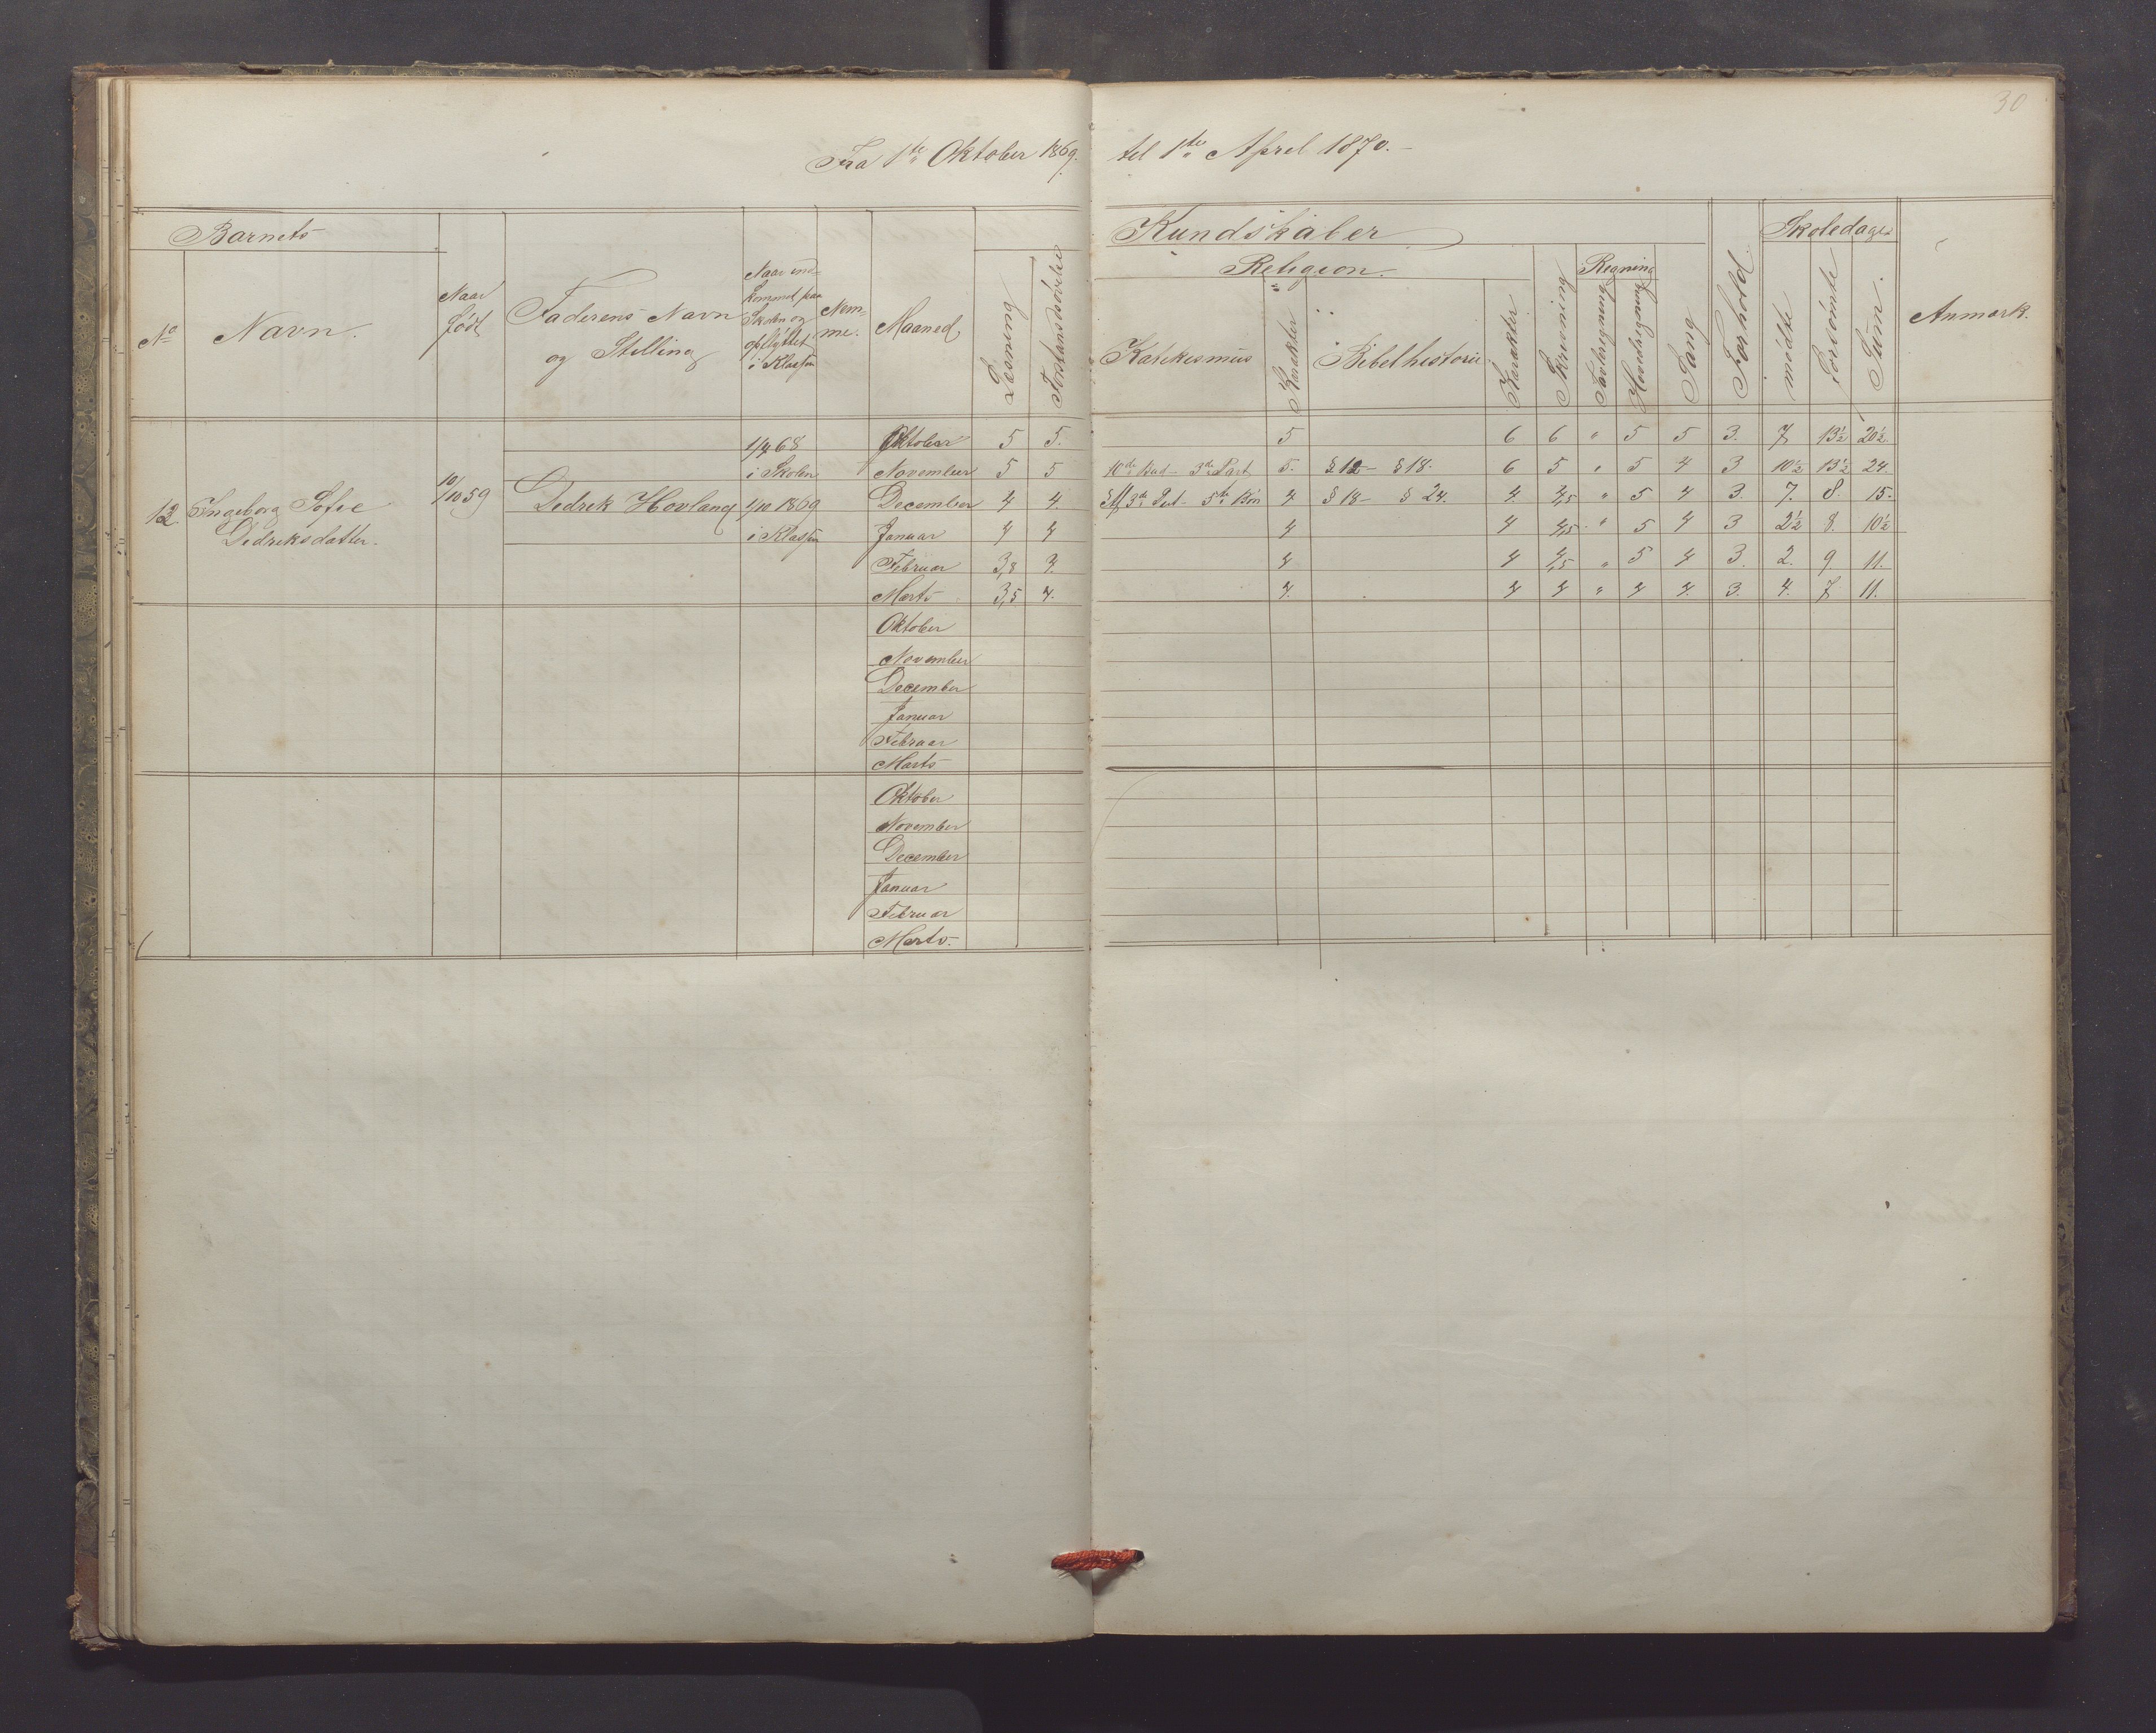 30
Fra 1ste Oktober 1869. til 1ste April 1870.-
Barnets
No
Navn.
Naar født
Faderens Navn og Stilling
Naar ind-
kommet paa
Skolen og
opflyttet
i Klassen
Nem-
me.
Maaned,
Kundskaber
Læsning
Forstandsøvelse
Religion.
Katekismus
Karakter
Bibelhistorie
Karakter
Skrivning
Regning
Tavleregning
Hovedregning
Sang
Forhold.
Skoledage
mødte
forsömte
Sum.
Anmærk.
1/4 68 Oktober 5 5. 5 6 6 " 5 5 3. 7 13½ 20½.
i Skolen November 5 5 10de Bud - 3die Part 5. § 12 - § 18. 6 5 " 5 4 3 10½ 13½ 24.
12. Ingeborg Sofie 10/10 59 Dedrek Hovland 1/10 1869 December 4 4. 3die Part - 5te Bön 4 § 18 - § 24. 4. 4,5 " 5 4 3. 7. 8. 15.
Dedreksdatter. i Klassen Januar 4 4 4 4 4,5 " 5 4 3 2½ 8. 10½
Februar 3,8 4. 4 4 4,5 " 5 4 3. 2. 9. 11.
Marts 3,5 4. 4. 4 4 " 4 4. 3. 4. 7 11.
Oktober
November
December
Januar
Februar
Marts
Oktober
November
December
Januar
Februar
Marts.